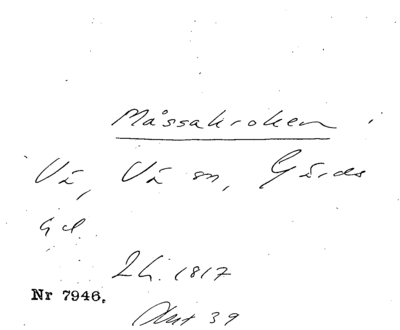 Måssakroken
Vä, Vä sn, Gärds
hd.
Lh. 1817
Nr 7946.
Akt 39